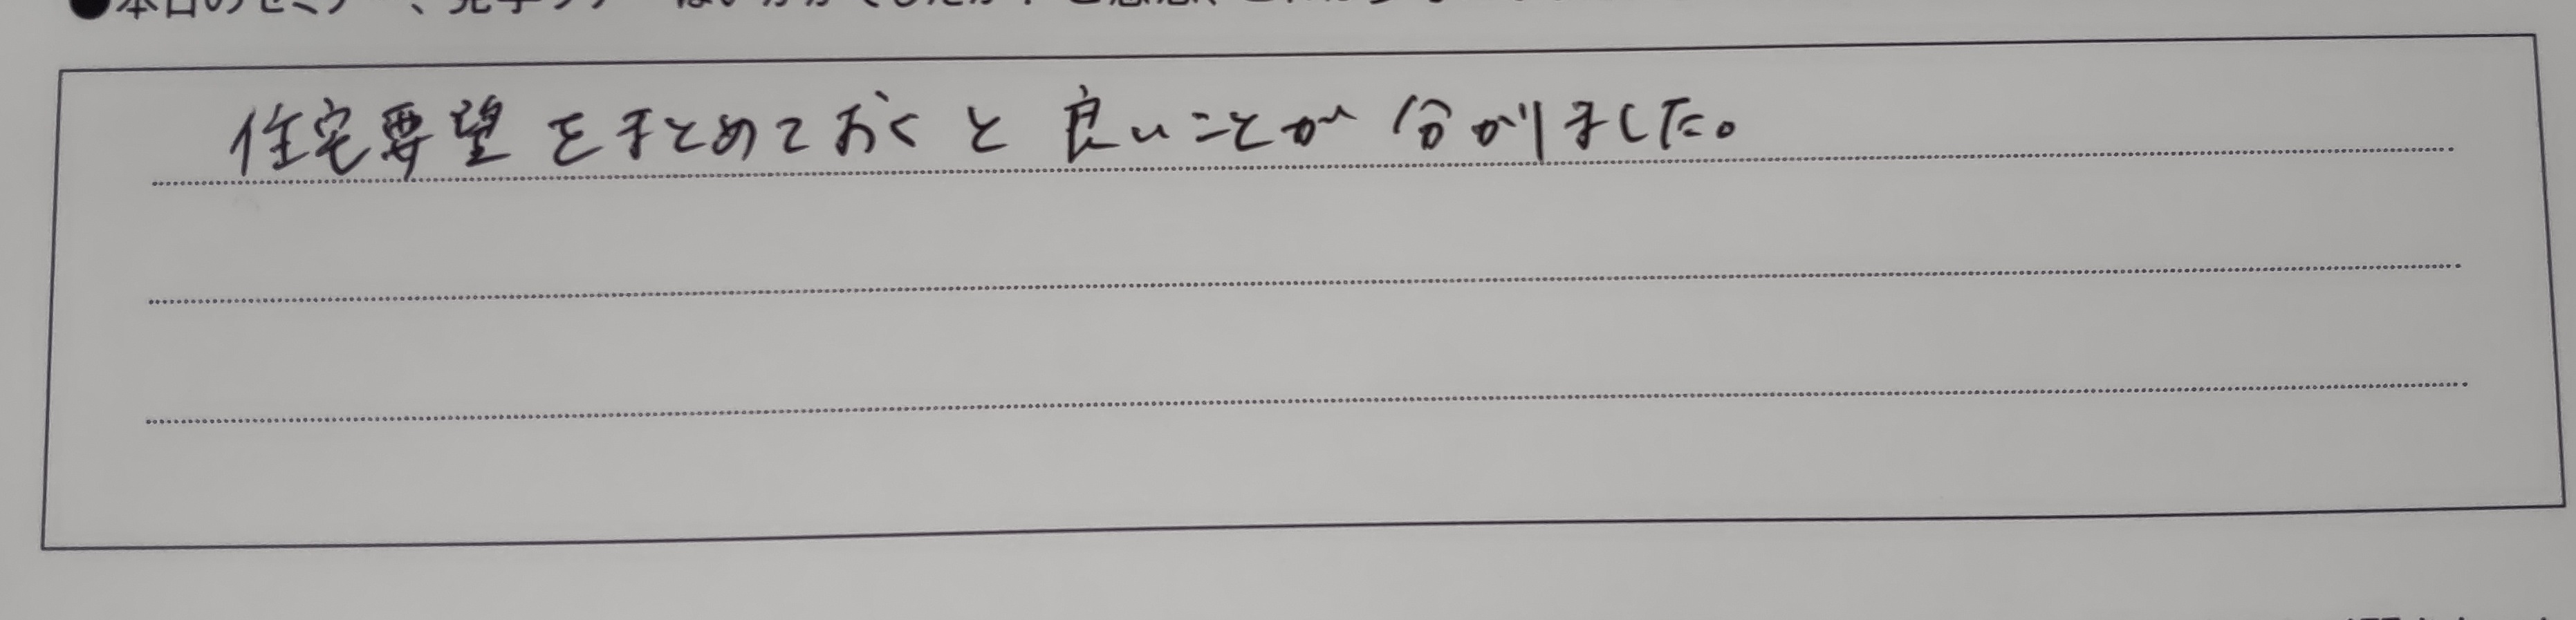 ●本日のセミナー、見学ツアーはいかがでしたか？ご感想、
住宅要望をまとめておくと良いことが分かりました。